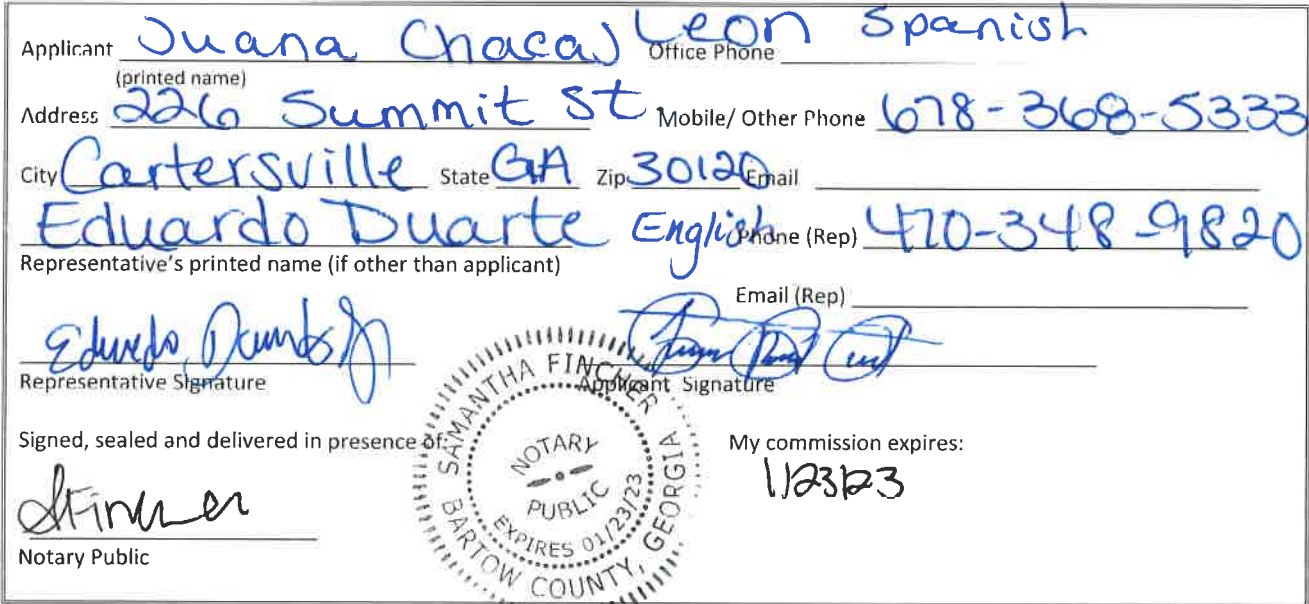 Applicant Juana Chacaj Leon Spanish Office Phone
(printed name)
Address 226 Summit St. Mobile/ Other Phone 678-368-5333
City Cartersville State GA Zip 30120 Email
Eduardo Duarte English Phone (Rep) 470-348-9820
Representative's printed name (if other than applicant)
Email (Rep)
Representative Signature Applicant Signature
Signed, sealed and delivered in presence of: My commission expires:
1/23/23
SAMANTHA FINCHER
NOTARY
PUBLIC
EXPIRES 01/23/23
BARTOW COUNTY, GEORGIA
SFincher
Notary Public